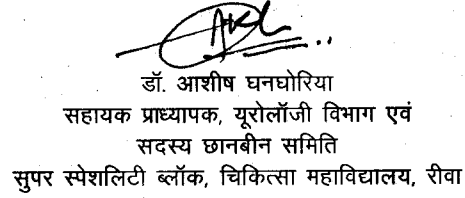 डॉ. आशीष घनघोरिया
सहायक प्राध्यापक, यूरोलॉजी विभाग एवं
सदस्य छानबीन समिति
सुपर स्पेशलिटी ब्लॉक, चिकित्सा महाविद्यालय, रीवा